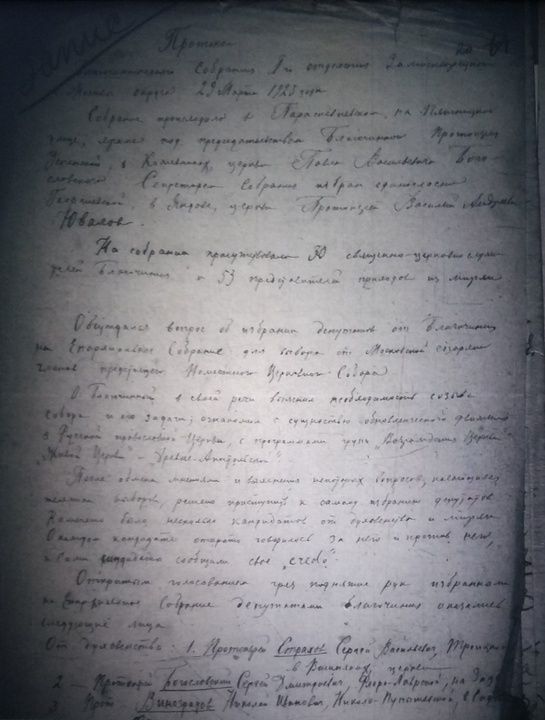 запис
Протокол
61
Благочиннического Собрания I-го отделения Замоскворецкого
округа 29 марта 1923 года
Собрание происходило в Параскевиевской, на Пятницкой
улице, храме под председательством Благочинного Протоиерея
в Кожевниках, церкви Павла Васильевича Бого-
словского Секретарем Собрания избран
Георгиевской, в Яндове, церкви Протоиерей Василий
Ювалов.
На собрании присутствовали 50 священно-церковно служи-
телей Благочиния и 53 представителей приходов из мирян
Обсуждался вопрос об избрании депутатов от Благочиния
на Епархиальное Собрание для выбора от Московской епархии
членов предстоящего Поместного Церковного Собора
О. Благочинный в своей речи выяснил необходимость созыва
собора и его задачи; ознакомил с сущностью обновленческого движения
в Русской православной Церкви, с программами групп „Возрождения Церкви"
„Живой Церкви" - „Древле-Апостольской"
После обмена мнениями и выяснения некоторых вопросов, касающихся
техники выборов, решено приступить к самому избранию депутатов
Намечено было несколько кандидатов от духовенства и мирян
О каждом кандидате открыто говорилось за него и против него,
и сами кандидаты сообщали свое „credo"
Открытым голосованием чрез поднятие рук избранными
на Епархиальное Собрание депутатами благочиния оказались
следующие лица
От духовенства: 1. Протоиерей Страхов Сергей Васильевич Троицкой
в Вишняках, церкви
2 - Протоиерей Богословский Сергей Дмитриевич Флоро-Лаврской, на
3 Прот. Виноградов Николай Иванович Николо-Пупышевской